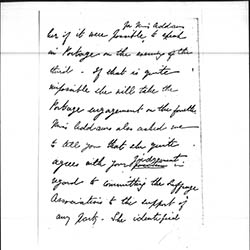 for Miss Addams
her if it were possible to speak
in Portage on the evening of the
third. If that is quite
impossible she will take the
Portage engagement on the fourth.
Miss Addams also asked me
to tell you that she quite
agrees with your judgement in
regard to committing the Suffrage
Association to the support of
any party. She identified